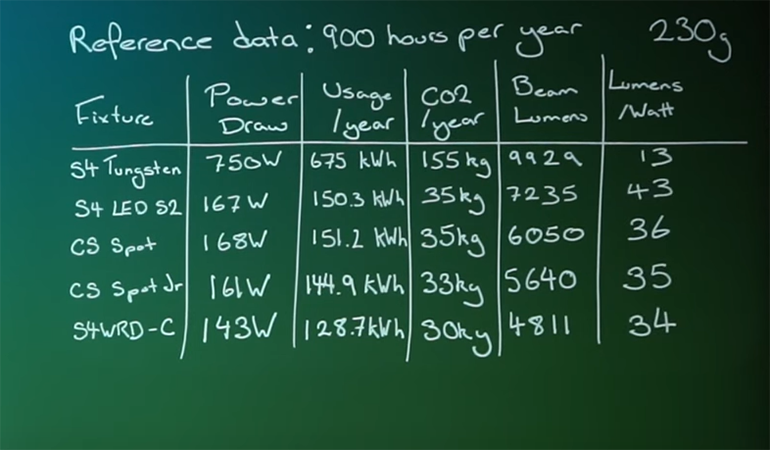 Reference data: 900 hours per year 230g
Fixture Power Draw Usage /year CO2 /year Beam Lumens Lumens /Watt
S4 Tungsten 750W 675 kWh 155kg 9929 13
S4 LED S2 167W 150.3 kWh 35kg 7235 43
CS Spot 168W 151.2 kWh 35kg 6050 36
CS Spot Jr 161W 144.9 kWh 33kg 5640 35
S4WRD-C 143W 128.7kWh 30kg 4811 34